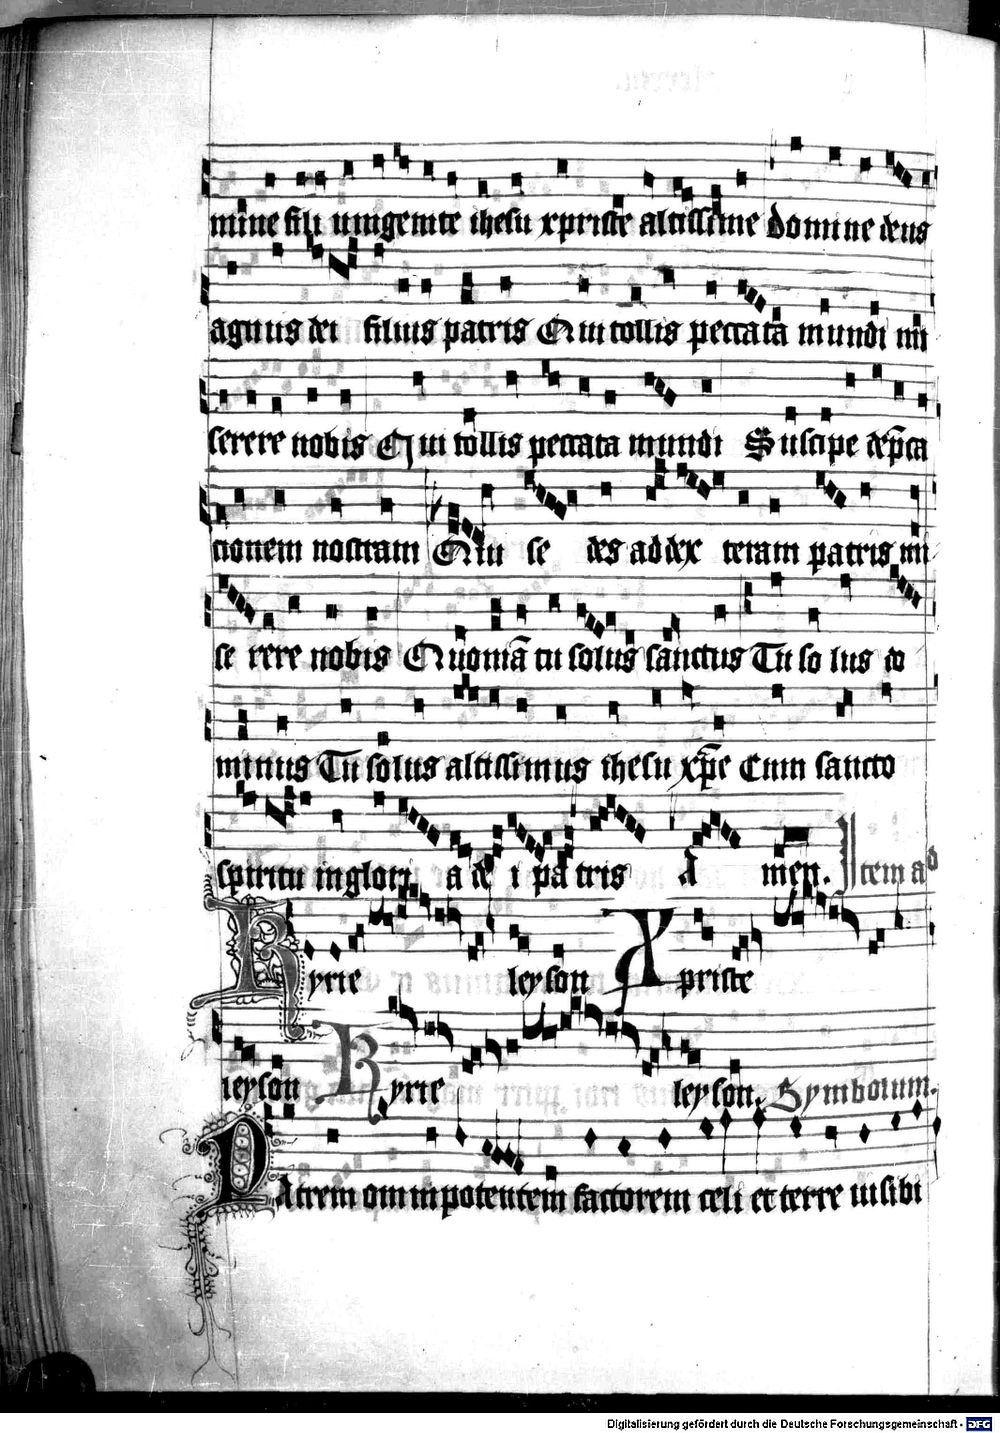 mine fili unigenite ihesu xpriste altissime Domine deus
agnus dei filius patris Qui tollis peccata mundi mi
serere nobis Qui tollis peccata mundi Suscipe depca
cionem nostram Qui se des ad dex teram patris mi
se rere nobis Quoniā tu solus sanctus Tu so lus do
minus Tu solus altissimus ihesu xpe Cum sancto
spiritu in glori a de i pa tris A men. Item ad
Kyrie leyson Xpriste
leyson Kyrie leyson. Symbolum.
PAtrem omnipotentem factorem celi et terre uisibi
Digitalisierung gefördert durch die Deutsche Forschungsgemeinschaft - DFG